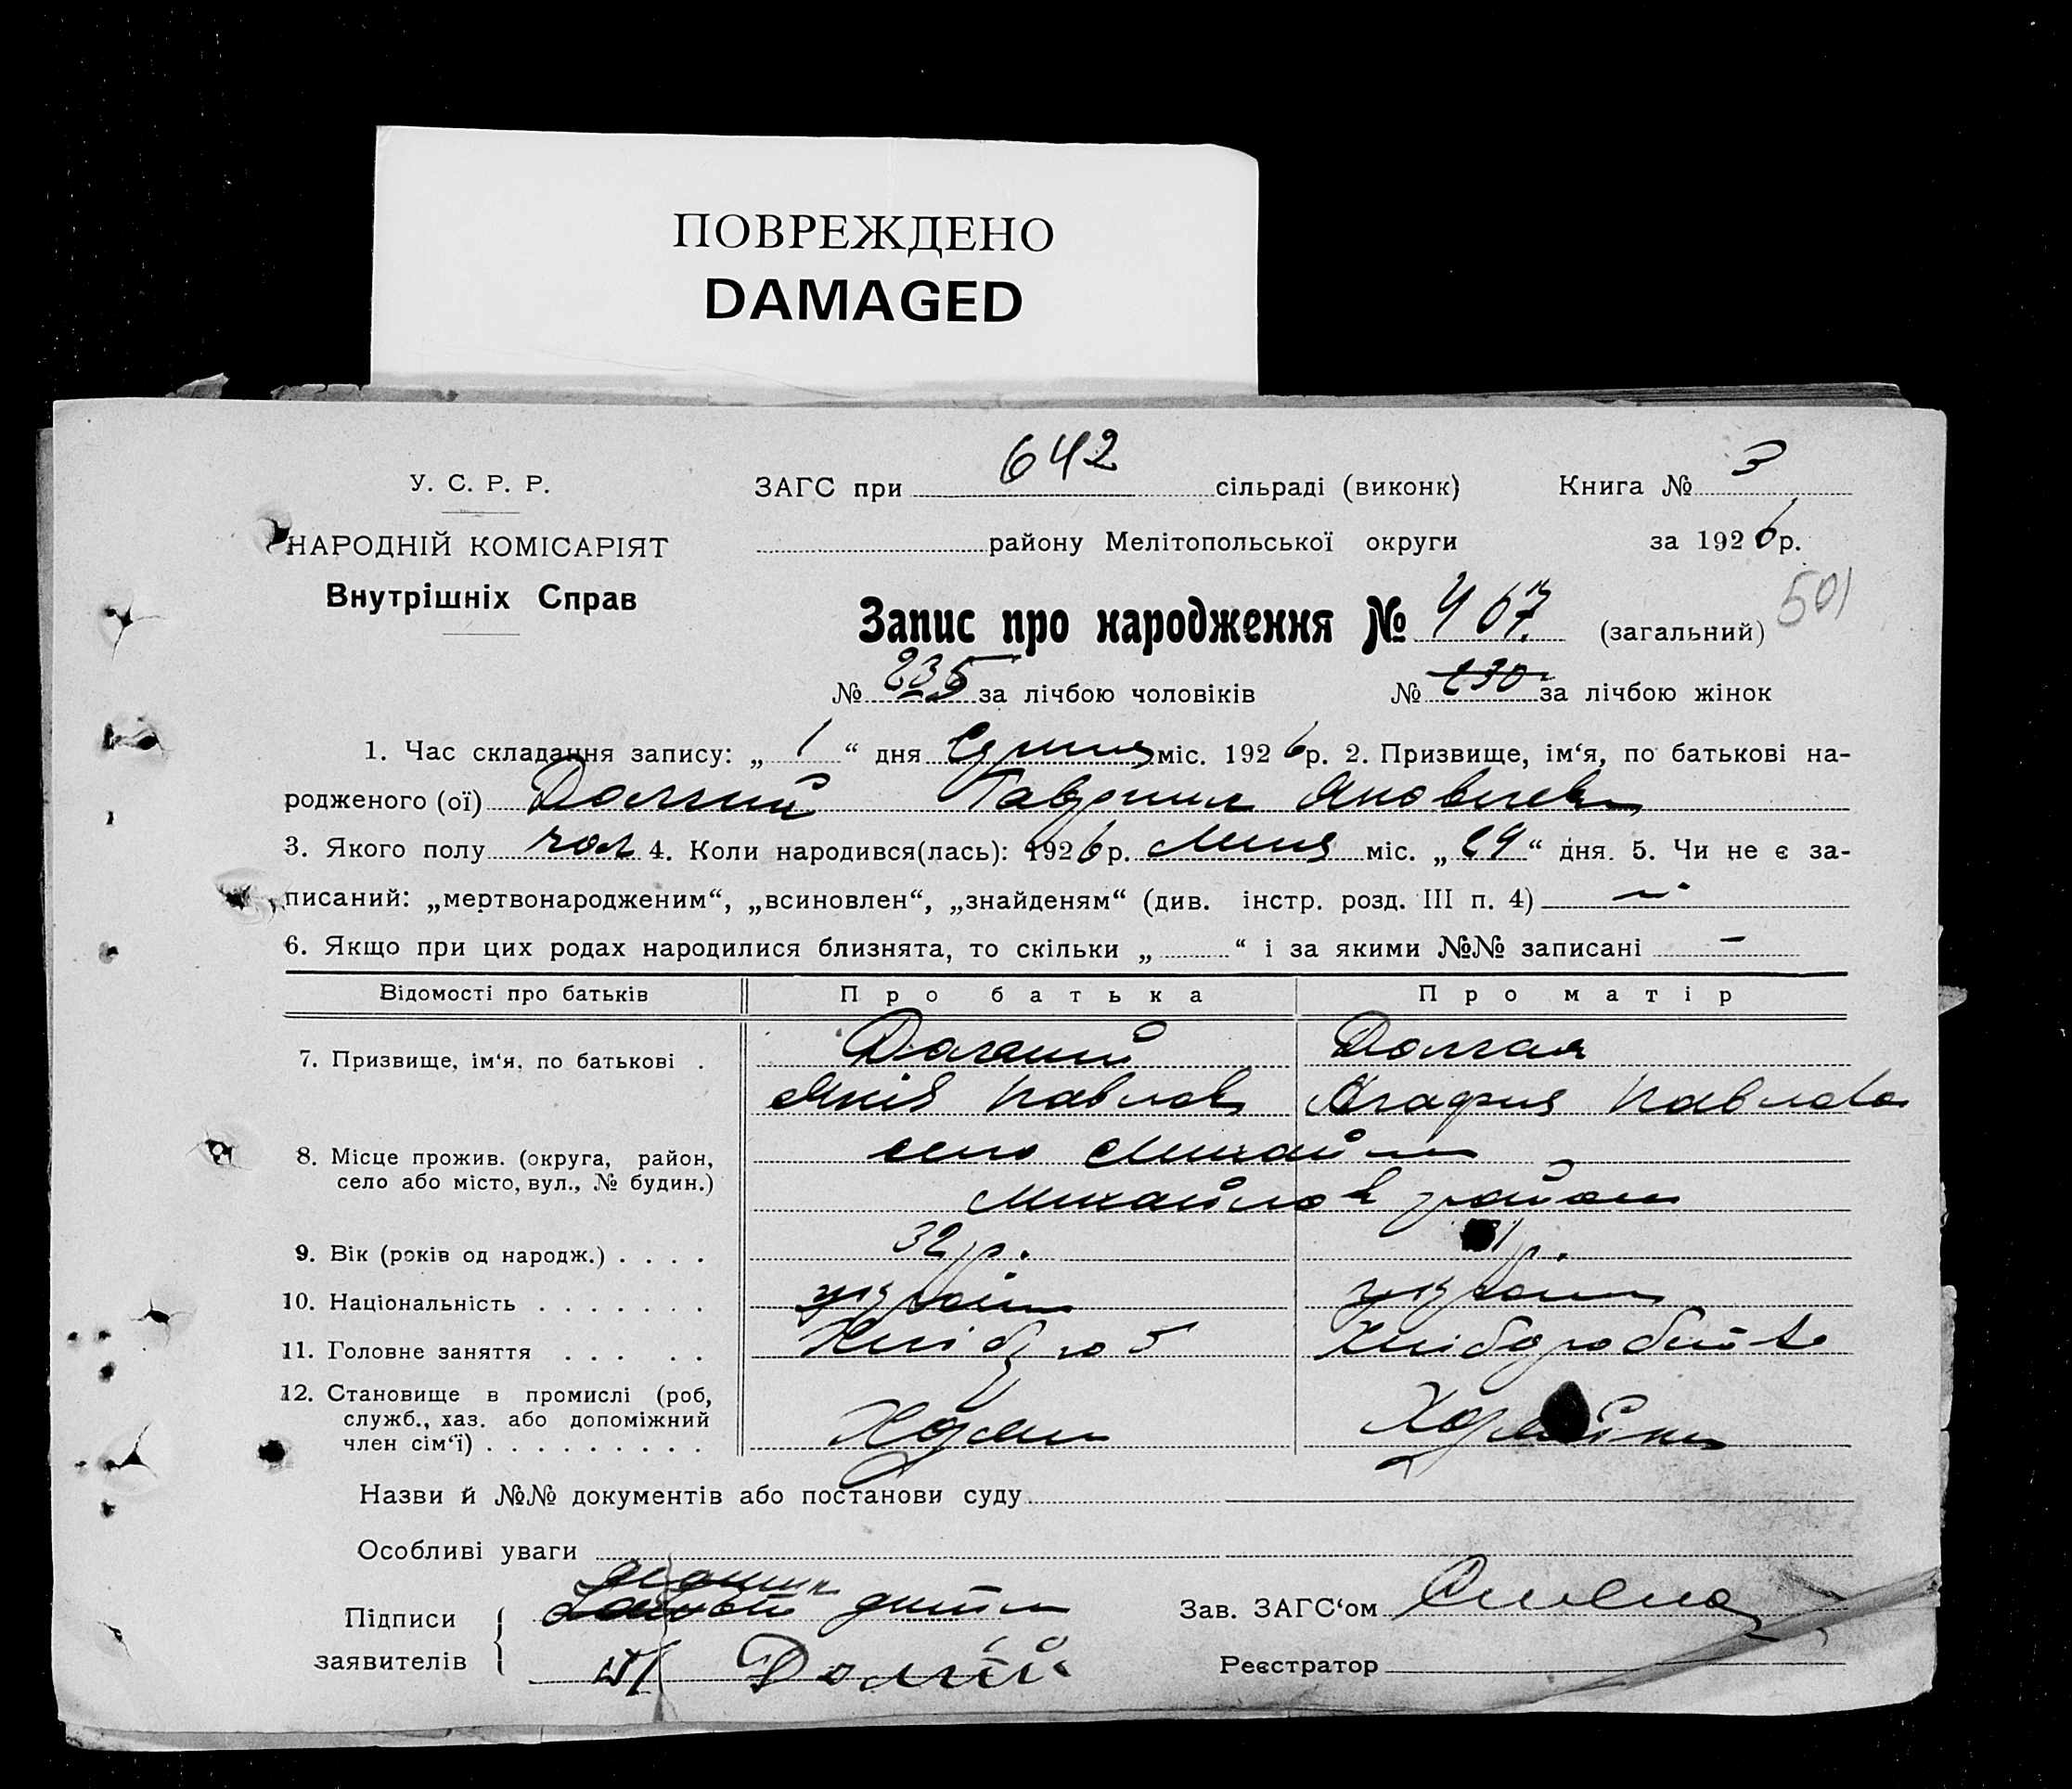 ПОВРЕЖДЕНО
DAMAGED
642
3
У. С. Р. Р.
ЗАГС при сільраді (виконк) Книга №
НАРОДНІЙ КОМІСАРІЯТ
району Мелітопольської округи за 1926 р.
Внутрішніх Справ
Запис про народження № 467. (загальний) 501
№ 235 за лічбою чоловіків № 230 за лічбою жінок
1. Час складання запису: „ 1 “ дня Серпня міс. 1926 р. 2. Призвище, ім‘я, по батькові на-
родженого (ої) Долгий Гавриил Яковлев
3. Якого полу чол 4. Коли народився(лась): 1926 р. Липня міс. „ 29 “ дня. 5. Чи не є за-
писаний: „мертвонародженим“, „всиновлен“, „знайденям“ (див. інстр. розд. III п. 4)
6. Якщо при цих родах народилися близнята, то скільки „ “ і за якими №№ записані —
Відомості про батьків Про батька Про матір
7. Призвище, ім‘я, по батькові . Долгий Долгая
Яків Павлов Агафия Павлова
8. Місце прожив. (округа, район, село Михайл
село або місто, вул., № будин.) Михайлов район
9. Вік (років од народж.) . . . . 32 р. р.
10. Національність . . . . . . . україн україн
11. Головне заняття . . . . . Хлібороб
12. Становище в промислі (роб,
служб., хаз. або допоміжний
член сім‘ї) . . . . . . . . .
Назви й №№ документів або постанови суду
Особливі уваги
Підписи Зав. ЗАГС‘ом
заявителів Долгій Реєстратор